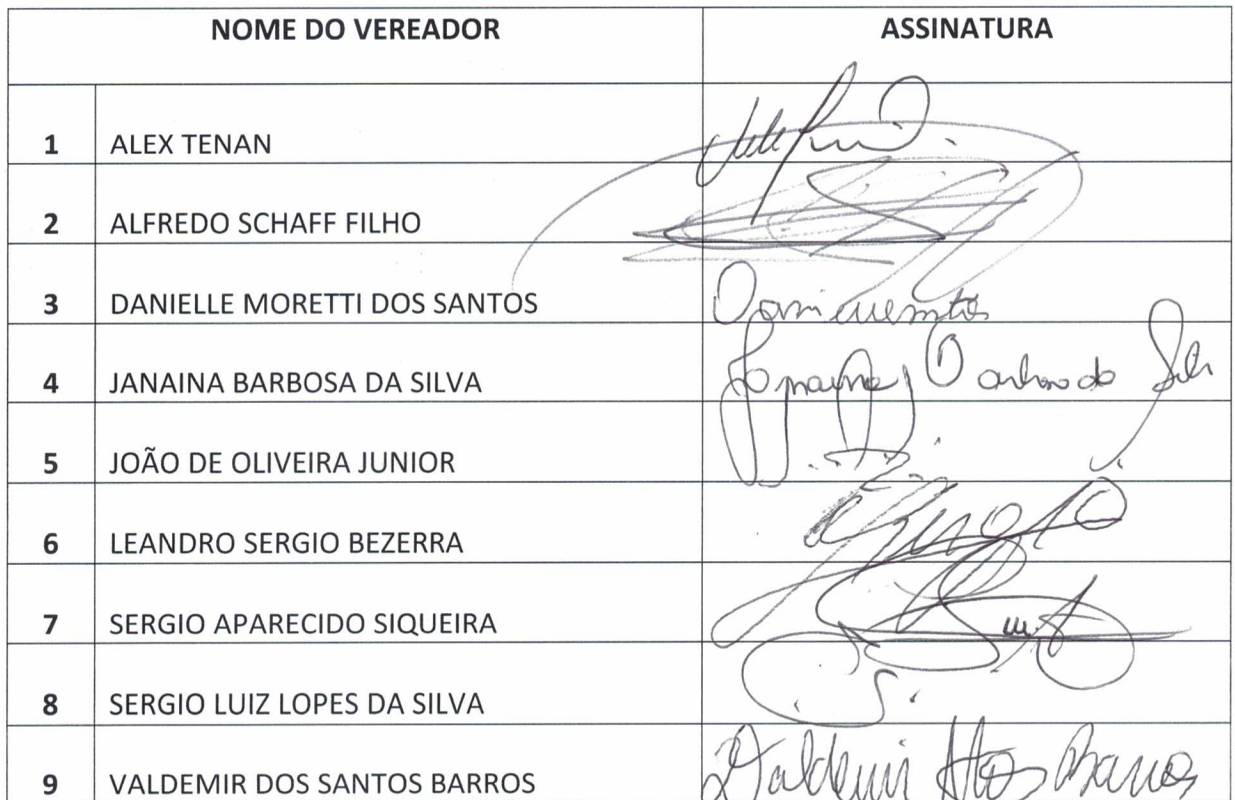 NOME DO VEREADOR ASSINATURA
1 ALEX TENAN
2 ALFREDO SCHAFF FILHO
3 DANIELLE MORETTI DOS SANTOS
4 JANAINA BARBOSA DA SILVA
5 JOÃO DE OLIVEIRA JUNIOR
6 LEANDRO SERGIO BEZERRA
7 SERGIO APARECIDO SIQUEIRA
8 SERGIO LUIZ LOPES DA SILVA
9 VALDEMIR DOS SANTOS BARROS Valdemir Barros